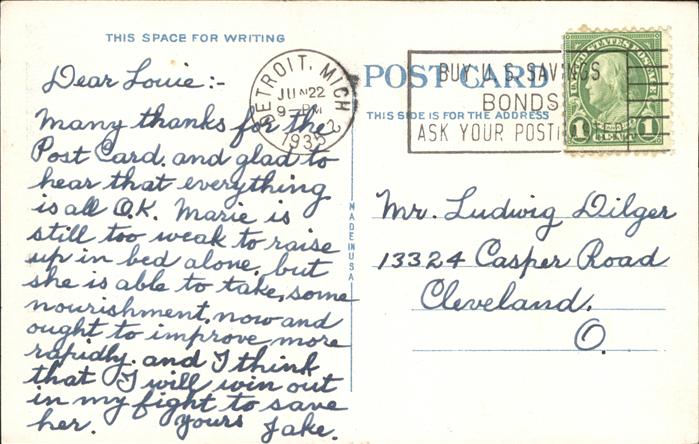 THIS SPACE FOR WRITING
Dear Louie:-
Many thanks for the
Post Card. and glad to
hear that everything
is all O.K. Marie is
still too weak to raise
up in bed alone, but
she is able to take, some
nourishment, now and
ought to improve more
rapidly. and I think
that I will win out
in my fight to save
her. yours Jake.
DETROIT, MICH
JUN 22
9-PM
1935
2
MADE IN USA
POST CARD
THIS SIDE IS FOR THE ADDRESS
BUY U.S. SAVINGS
BONDS
ASK YOUR
UNITED STATES POSTAGE
1 CENT 1
Mr. Ludwig Dilger
13324 Casper Road
Cleveland.
O.